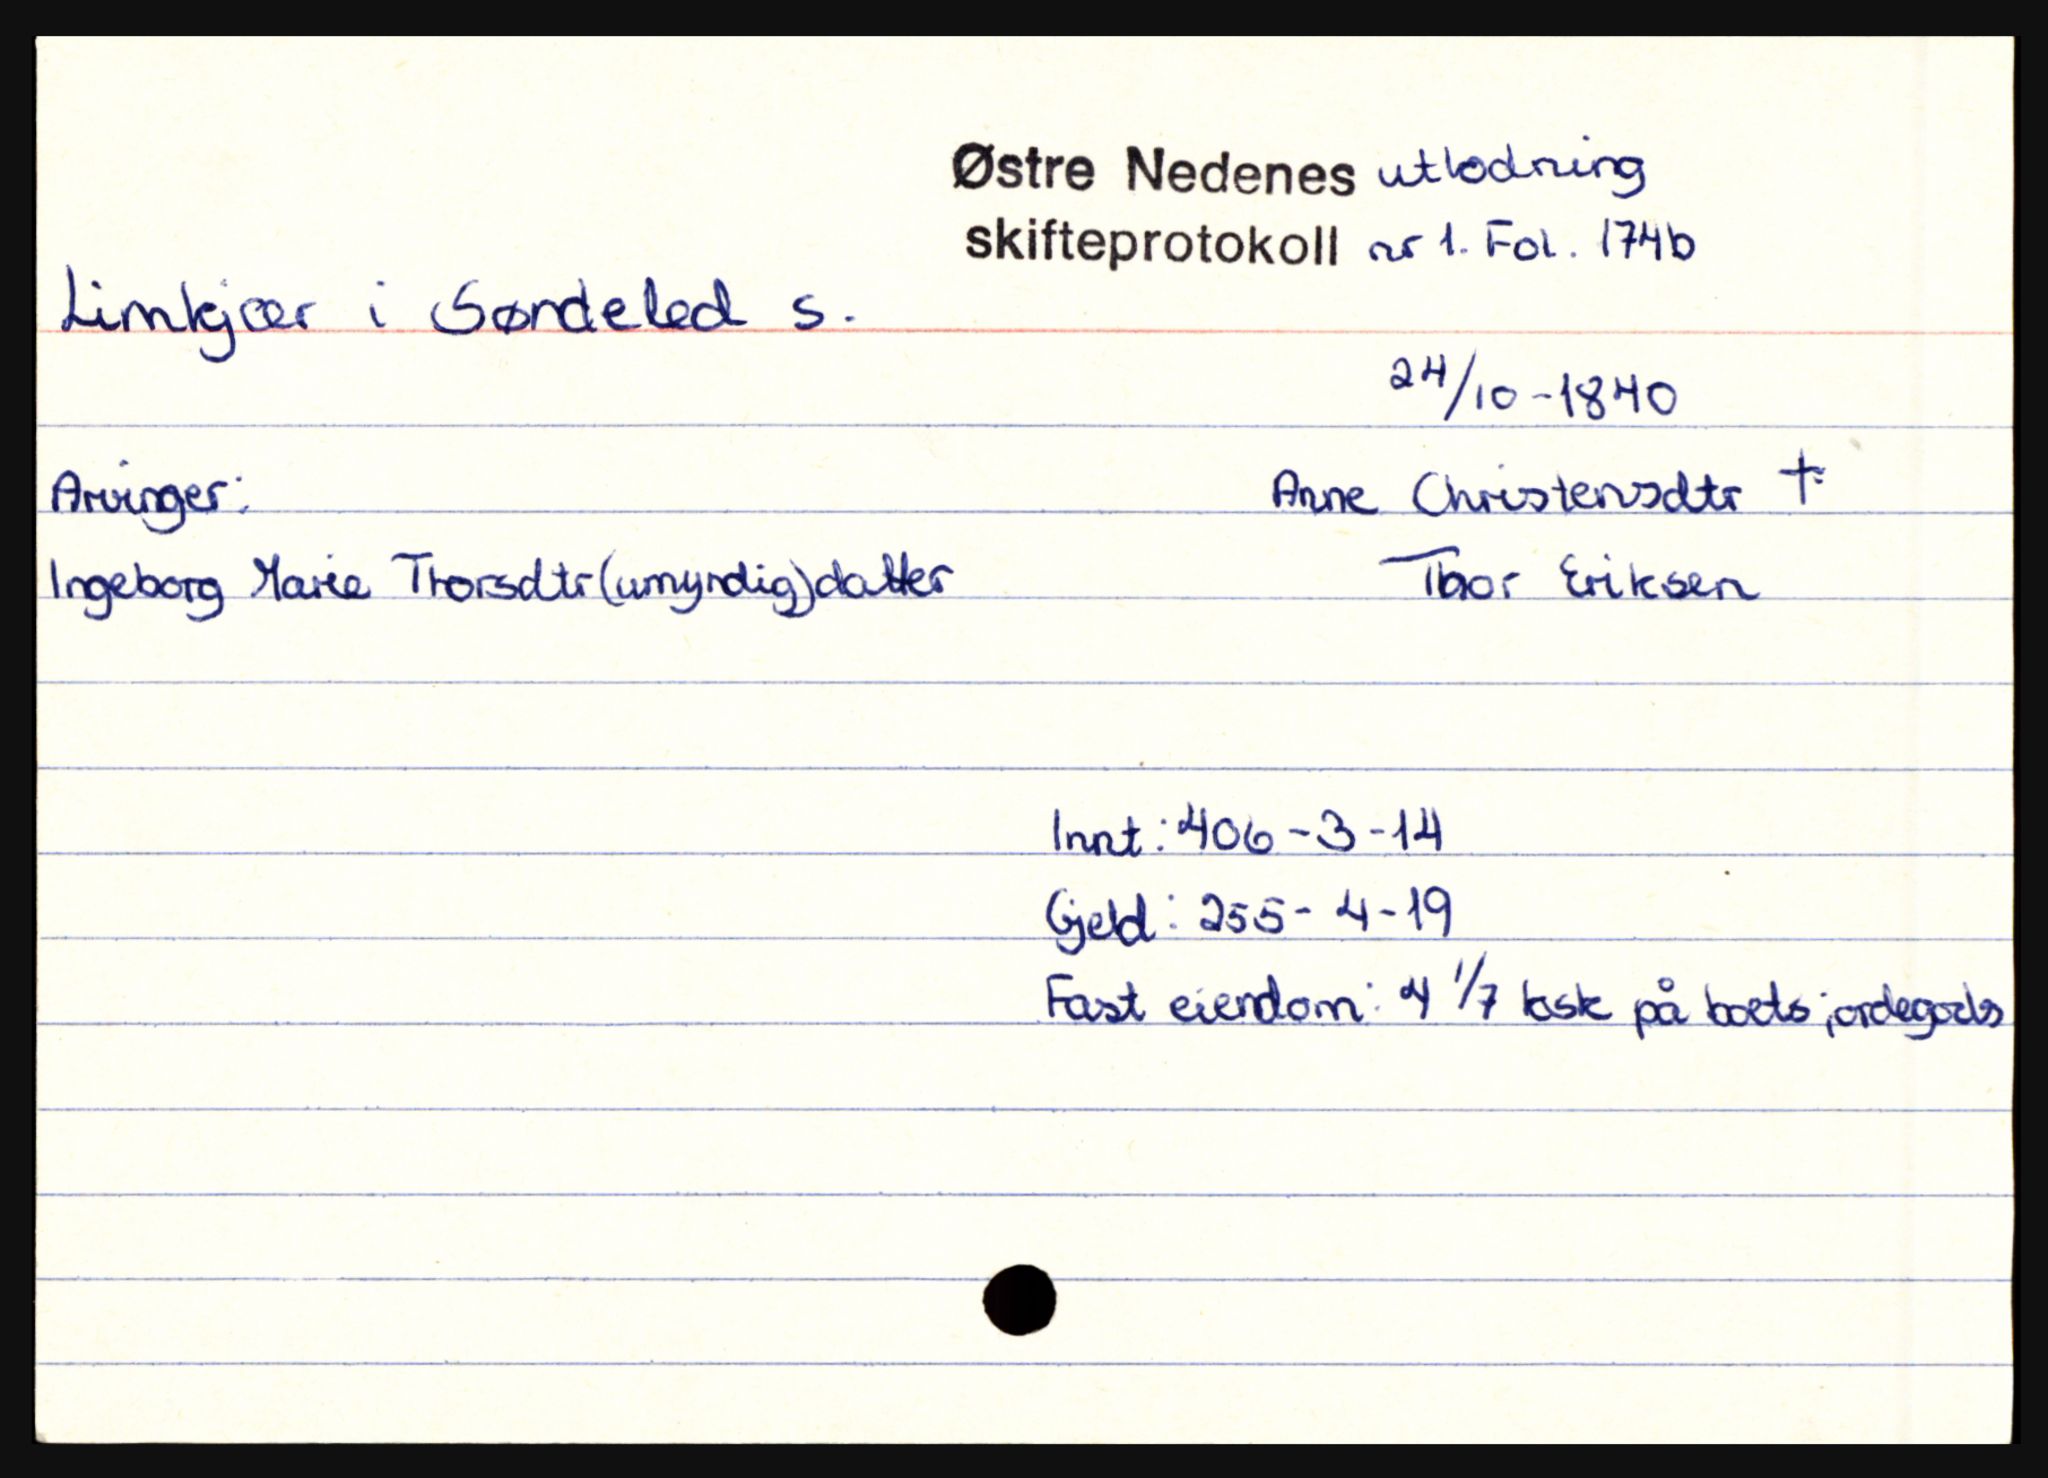 Østre Nedenes utlodning
skifteprotokoll nr 1. Fol. 174b
Limkjær i Søndeled s.
24/10-1840
Arvinger: Anne Christensdtr †
Ingeborg Marie Thorsdtr (umyndig) datter Thor Eriksen
Innt: 406-3-14
Gjeld: 255-4-19
Fast eiendom: 4 1/7 ksk på boets jordegods